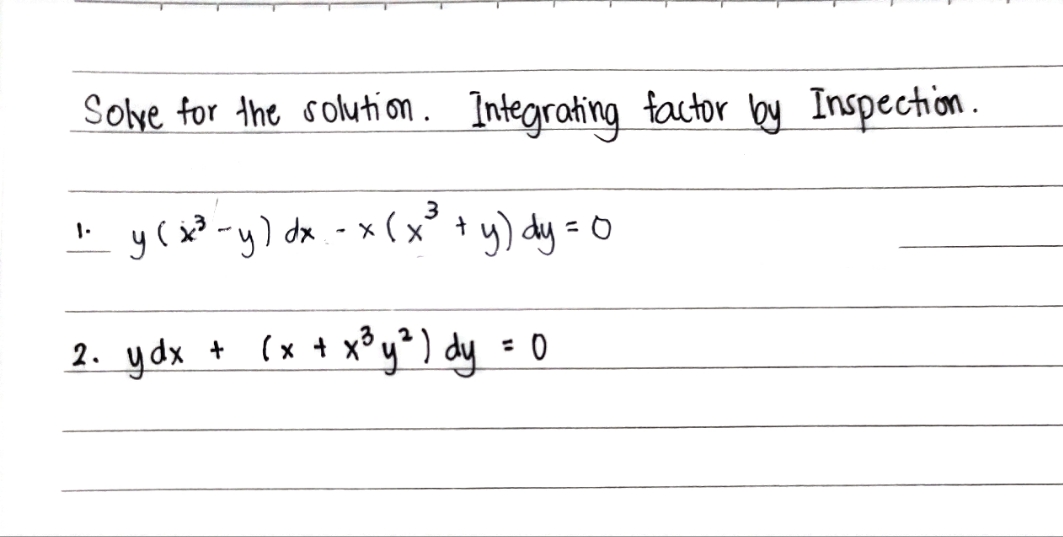 Solve for the solution. Integrating factor by Inspection.
1. y(x³-y) dx - x(x³ + y) dy = 0
2. ydx + (x + x³y²) dy = 0